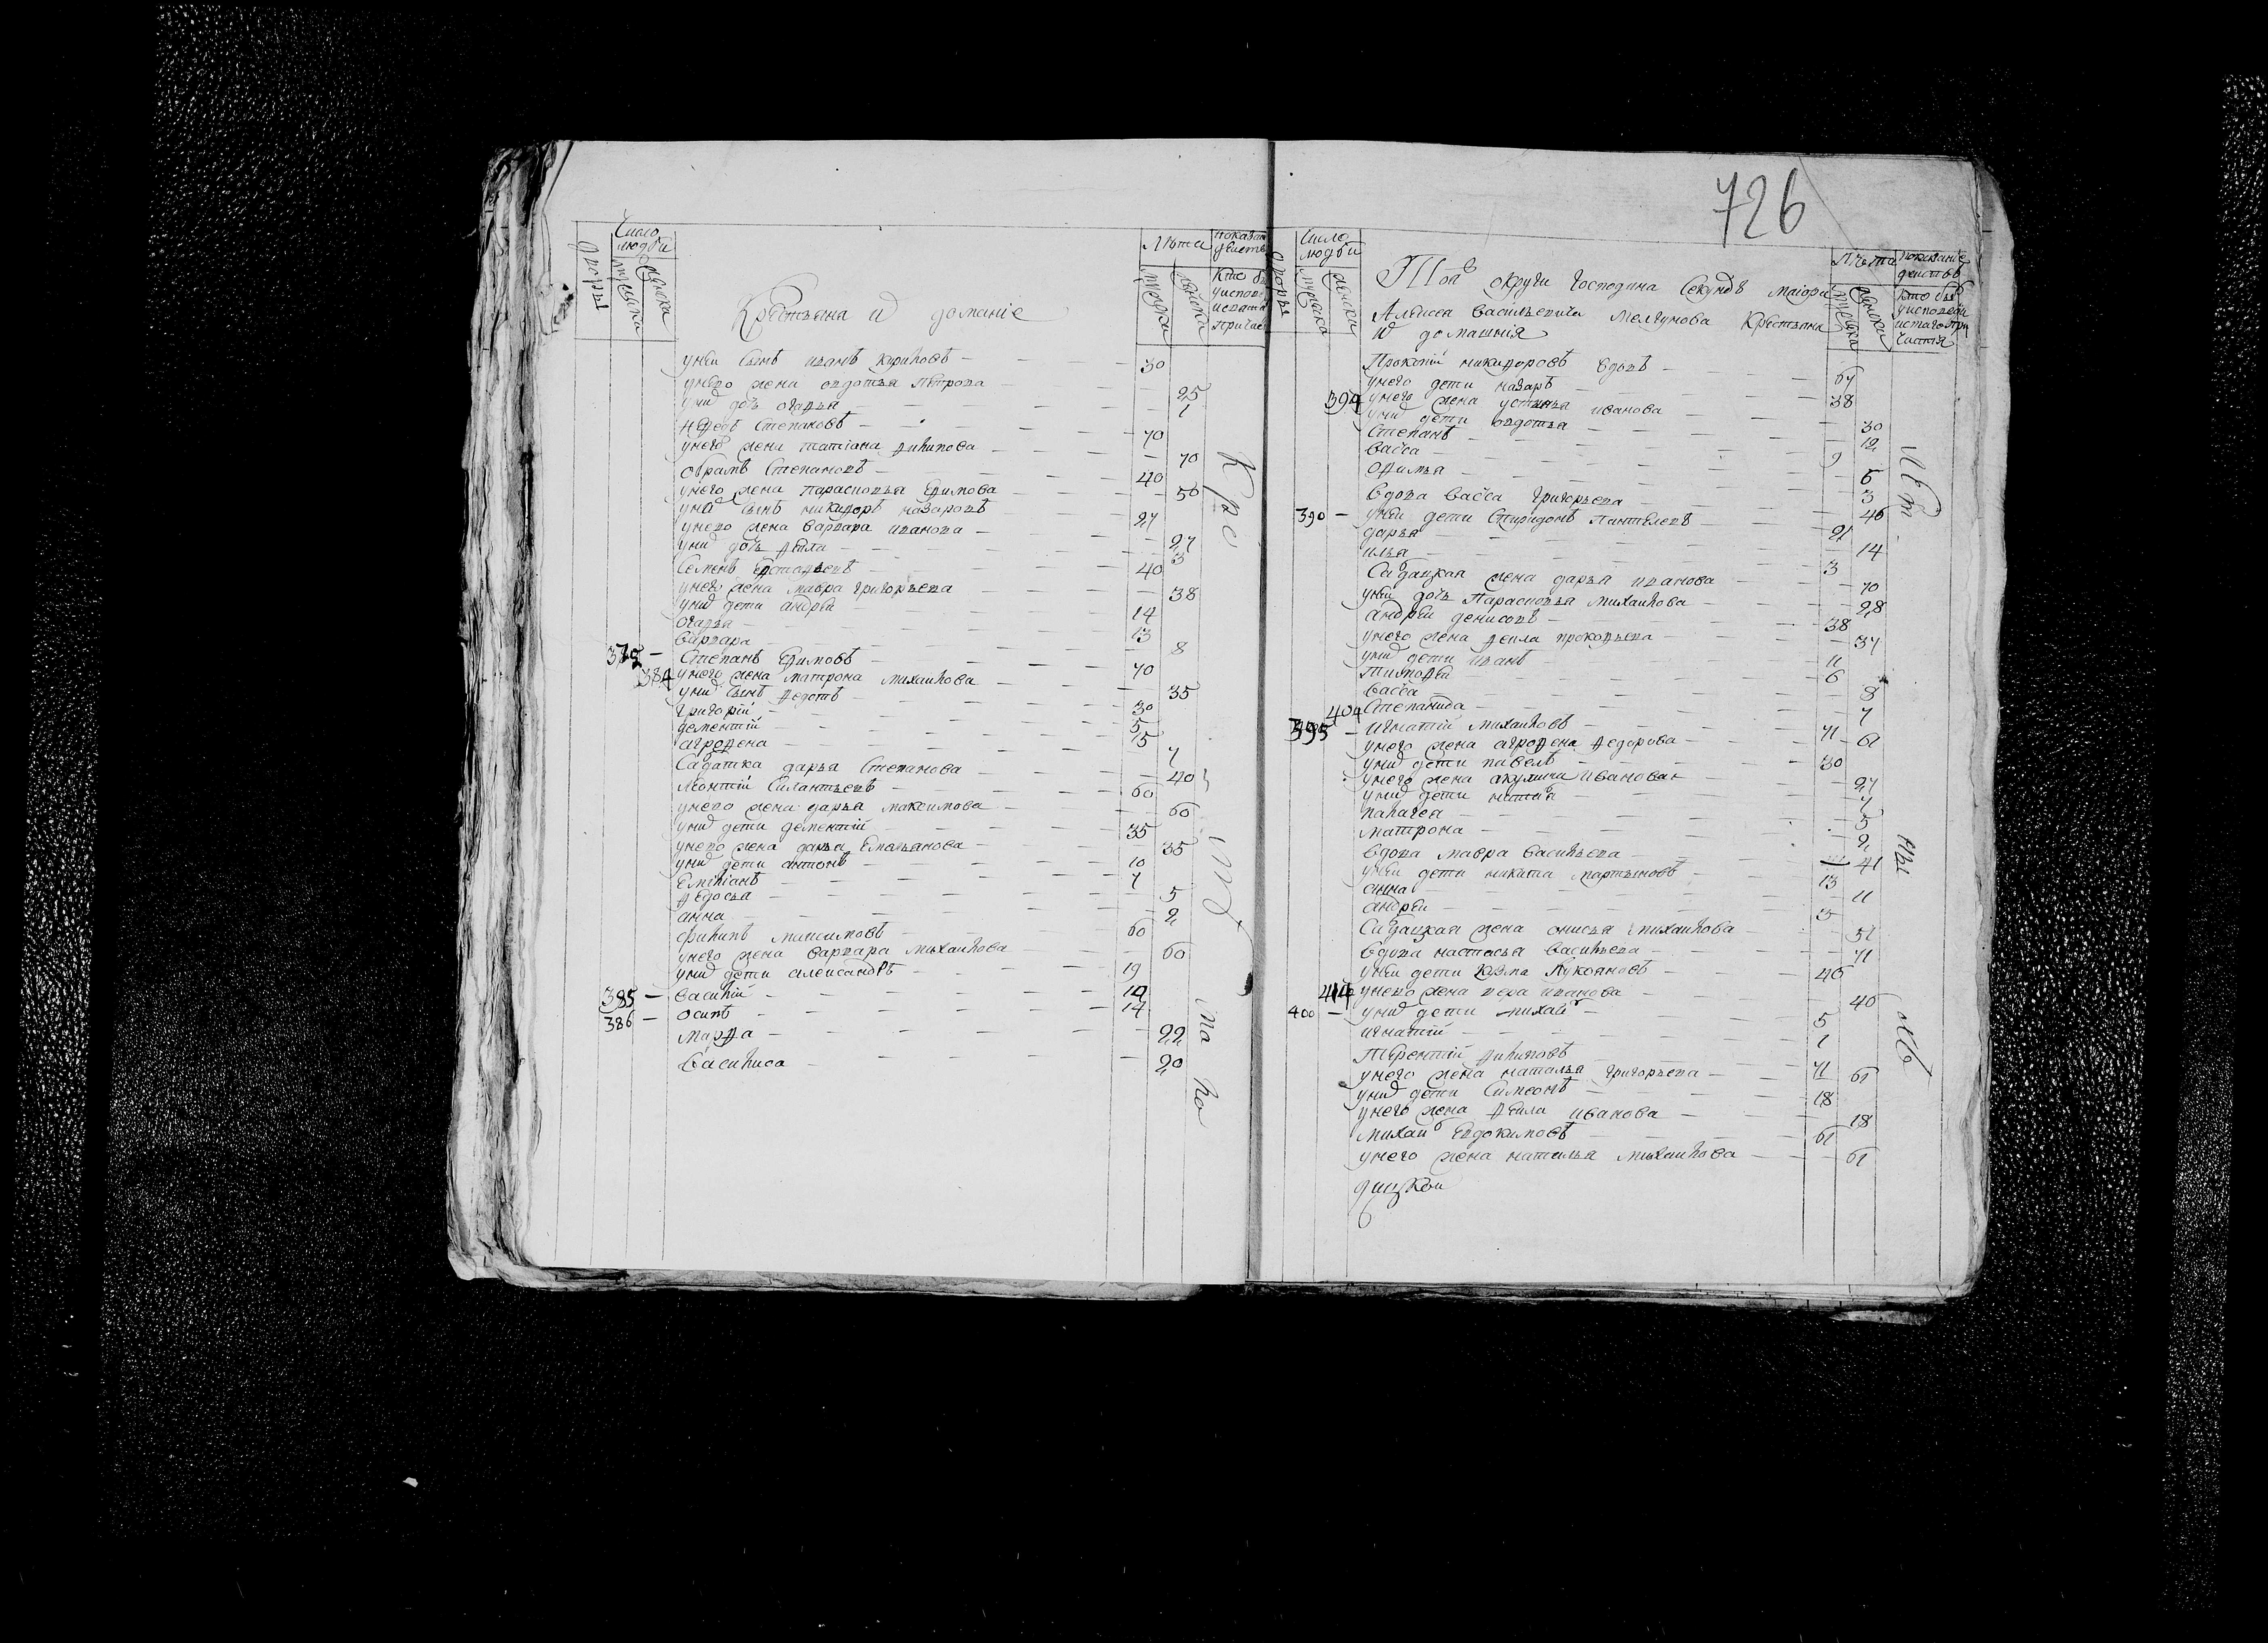 726
Число людей
Дворы
мужска
женска
Крестьяна и домание
Лета
мужска
женска
унеи сынъ иванъ кириловъ — 30
унего жена овдотья Петрова — 25
униꙵ дочь огафья — 1
Нефедъ Степановъ — 70
унего жена татiана филипова — 70
обрамъ Степановъ — 40
унего жена парасковья Ефимова — 50
униꙵ сынъ никифоръ назаровъ — 27
унево жена варвара иванова — 27
униꙵ дочь фекла — 3
Семенъ Естафьевъ — 40
унего жена мавра григорьева — 38
униꙵ дети андрей — 14
огафья — 13
варвара — 8
Степанъ Ефимовъ — 70
384 унего жена матрона михаилова — 35
униꙵ сынъ федотъ — 30
григорiй — 5
дементiй — 15
агрофена — 7
Салдатка дарья Степанова — 40
леонтiй Силантьевъ — 60
унево жена дарья максимова — 60
униꙵ дети дементiй — 35
унево жена дарья Емельянова — 35
униꙵ дети антонъ — 10
Емелiанъ — 7
федосья — 5
анна — 2
филипъ максимовъ — 60
унего жена варвара михаилова — 60
униꙵ дети александръ — 19
385 — василiй — 19
386 — осипъ — 14
марфа — 22
василиса — 20
Число людей
Дворы
мужска
женска
Той округи господина Секундъ маiора
Алексея васильевича мелгунова крестьяна
и домашнiя
Лета
мужска
женска
Прокопiй никифоровъ вдовъ — 67
унего дети назаръ — 38
394 унего жена устинья иванова — 30
униꙵ дети овдотья — 12
Степанъ — 9
васса — 6
офимья — 3
вдова васса григорьева — 46
390 — унеи дети Спиридонъ пантелеевъ — 21
дарья — 14
илья — 3
Салдацкая жена дарья иванова — 70
унеи дочь Парасковья михаилова — 28
андрей денисовъ — 38
унего жена фекла прокофьева — 37
униꙵ дети иванъ — 11
тимофей — 6
васса — 8
404 Степанида — 7
395 — игнатiй михаиловъ — 71
унего жена агрофена федорова — 61
униꙵ дети павелъ — 30
унего жена акулина иванова — 27
палагея — 5
матрона — 2
вдова мавра васильева — 41
унеи дети никита мартыновъ — 13
анна — 11
андрей
Салдацкая жена анисья михаилова — 51
вдова настасья васильева — 71
унеи дети козма лукояновъ — 46
414 унево жена вера иванова — 40
400 — униꙵ дети михаиⷧ — 5
игнатiй — 1
терентiй филиповъ — 71
унего жена наталья григорьева — 61
униꙵ дети Симеонъ — 18
унего жена фекла иванова — 18
михаиⷧ Евдокимовъ — 61
унего жена наталья михаилова — 61